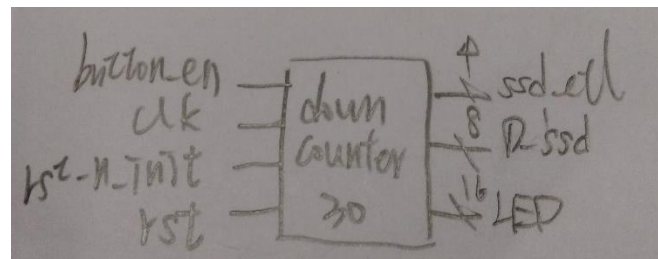 button_en
clk
rst_n_init
rst
down
counter
30
4
ssd_ctl
8
D_ssd
16
LED